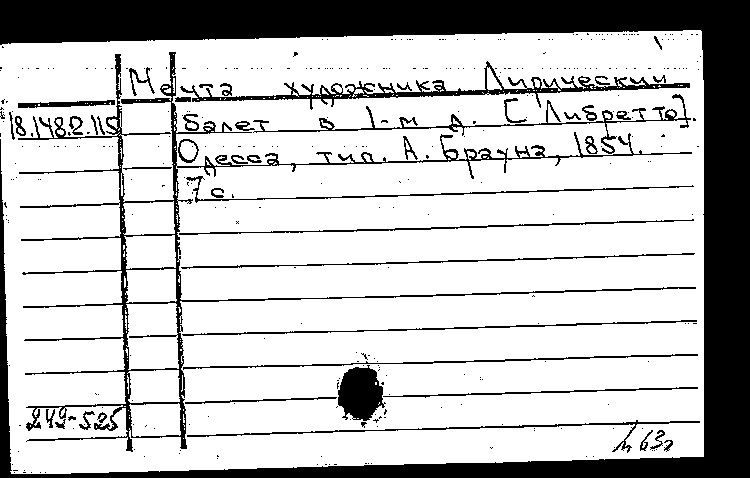 Мечта художника. Лирический
18.148.2.115 балет в 1-м д. [Либретто].
Одесса, тип. А. Брауна, 1854.
7 с.
242-525